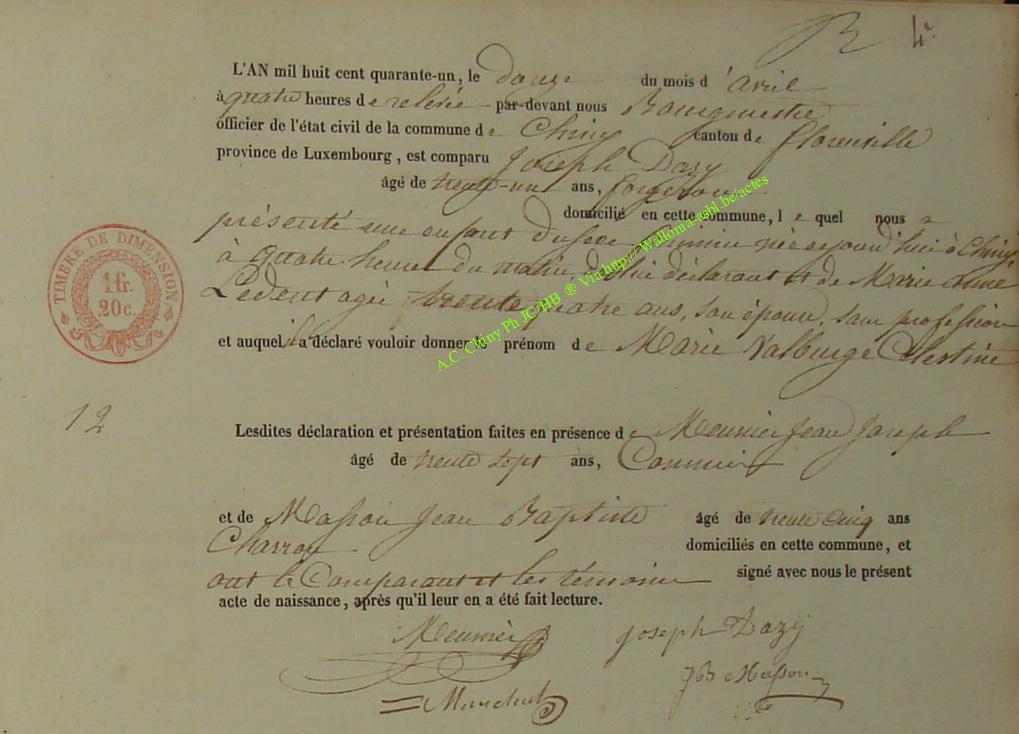 B 4e
L'AN mil huit cent quarante-un, le douze du mois d'avril
à quatre heures de relevée par-devant nous Bourgmestre
officier de l'état civil de la commune de Chiny canton de florenville
province de Luxembourg, est comparu Joseph Dazy
âgé de trente-un ans, forgeron
domicilié en cette commune, le quel nous a
présenté une enfant du sexe féminin née aujourd'hui à Chiny,
à quatre heures du matin, de lui déclarant et de Marie anne
Ledent agée trente quatre ans, son épouse, sans profession
et auquel il a déclaré vouloir donner le prénom de Marie Valburge Célestine
TIMBRE DE DIMENSION.
1 fr.
20 c.
A.C. Chiny Ph JC/HB ® Via http://Wallonia-asbl.be/actes
12
Lesdites déclaration et présentation faites en présence de Meunier Jean Joseph
âgé de trente sept ans,
et de Masson Jean Baptiste âgé de trente cinq ans
Charron domiciliés en cette commune, et
ont le Comparant et les témoins signé avec nous le présent
acte de naissance, après qu'il leur en a été fait lecture.
Meunier Joseph Dazÿ
JB Masson